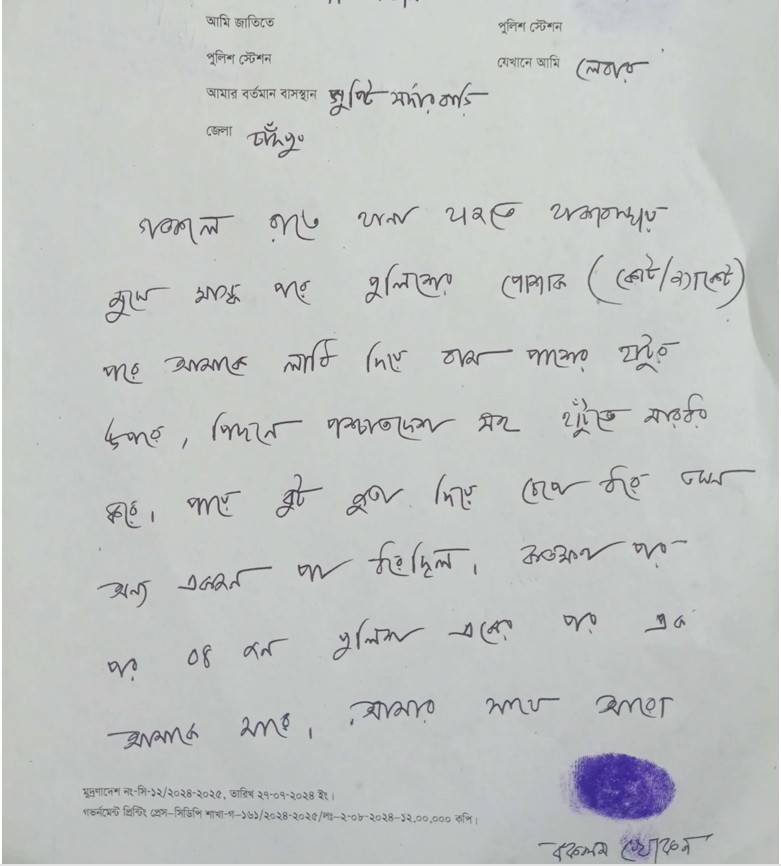 আমি জাতিতে পুলিশ স্টেশন
পুলিশ স্টেশন যেখানে আমি লেবার
আমার বর্তমান বাসস্থান সর্দার বাড়ি
জেলা চাঁদপুর
গতকাল রাতে থানা থাকাবস্থায়
মুখে মাস্ক পরে পুলিশের পোশাক (কোট/জ্যাকেট)
পরে আমাকে লাঠি দিয়ে বাম পাশের হাটুর
উপরে, পিছনে পশ্চাতদেশ সহ মারধর
করে। পায়ে বুট জুতা দিয়ে চেপে ধরে তখন
অন্য একজন পা ধরেছিল। কতক্ষণ পর
পর ০৪ জন পুলিশ একের পর এক
আমাকে মারে। আমার সাথে আরো
মুদ্রণাদেশ নং-সি-১২/২০২৪-২০২৫, তারিখ ২৭-০৭-২০২৪ ইং।
গভর্নমেন্ট প্রিন্টিং প্রেস–সিডিপি শাখা-গ-১৬১/২০২৪-২০২৫/পিঃ–২-০৮-২০২৪–১২,০০,০০০ কপি।
বকলম